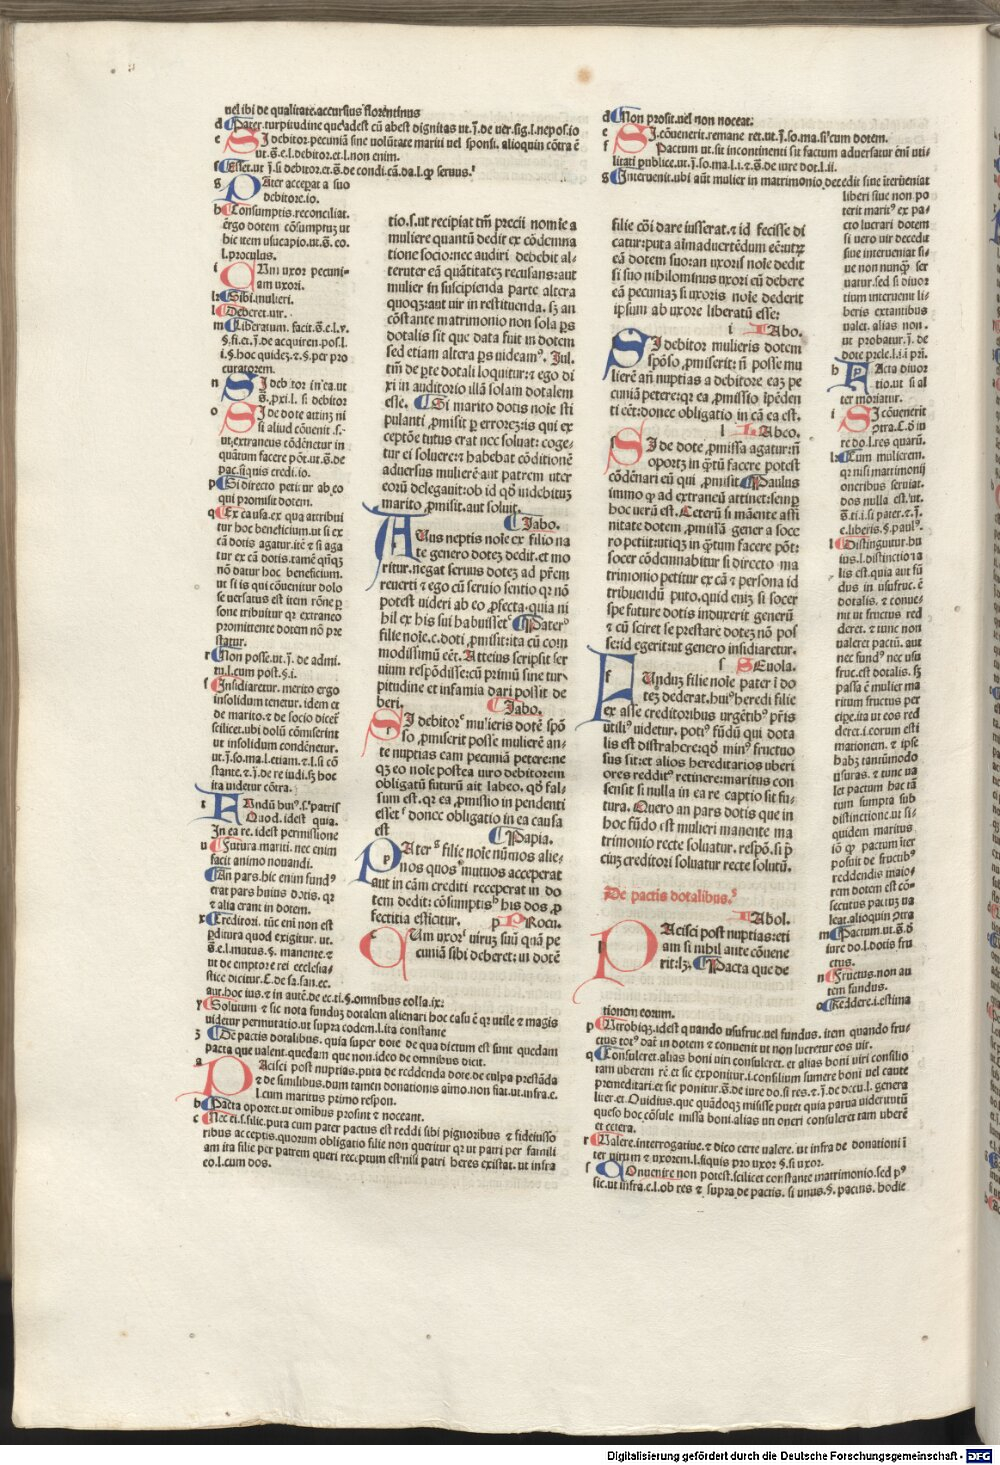 nel ibi de qualitate. accursius florentinus
d Pater. turpitudine que adest cū abest dignitas ut. j. de uer. sig. l. nepos. io
e SI debitor. pecuniā sine uolūtate mariti uel sponsi. alioquin cōtra ē
ut. g. e. l. debitor. et. l. non enim.
f Esset. ut j. si debitor. et. g. de condi. cā. da. l. ꝙ seruus.
g PAter acceperat a suo
debitore. io.
h Consumptis. reconciliat.
ergo dotem cōsumptuꝫ ut
hic item usucapio. ut. g. eo.
l. proculus.
i CUm uxor pecuni-
am uxori.
k Sibi. mulieri.
l Deberet. uir.
m Liberatum. facit. g. e. l. v.
§. fi. et. j. de acquiren. pos. l.
i. §. hoc quideꝫ. ⁊. §. per pro
curatorem.
n SI debitor in ea. ut
g. ꝓxi. l. si debitor
o SI de dote attinꝫ ni
si aliud cōuenit .s.
ut. extraneus cōdēnetur in
quātum facere pōt. ut. g. de
pac. si quis credi. io.
p Si directo petitur ab eo
qui promisit dotem.
q Ex causa. ex qua attribui
tur hoc beneficium. ut si ex
cā dotis agatur. itē ⁊ si aga
tur ex cā dotis. tamē qn̄qꝫ
nō datur hoc beneficium.
ut si is qui cōuenitur dolo
se uersatus est item rōne ꝑ
sone tribuitur qꝛ extraneo
promittente dotem nō pre
statur.
r Non posse. ut. j. de admi.
tu. l. cum post. §. i.
s Insidiaretur. merito ergo
insolidum tenetur. idem et
de marito. ⁊ de socio dicer
scilicet. ubi dolū cōmiserint
ut insolidum condēnetur.
ut. j. so. ma. l. etiam. ⁊ l. si cō
stante. ⁊. j. de re iudi. sꝫ hoc
ita uidetur cōtra.
t FUndū hui9. s. patris
Quod. idest quia.
In ea re. idest permissione
u Futura. mariti. nec enim
facit animo nouandi.
An pars. hic enim fund9
erat pars huius dotis. qꝛ
⁊ alia erant in dotem.
x Creditori. tūc eni non est
ꝑditura quod exigitur. ut.
g. e. l. mutus. §. manente. ⁊
ut de emptore rei ecclesia-
stice dicitur. C. de sa. san. ec.
aut. hoc ius. ⁊ in autē. de ec. ti. §. omnibus colla. ix:
y Solutum ⁊ sic nota funduꝫ dotalem alienari hoc casu ē qꝛ utile ⁊ magis
uidetur permutatio. ut supra codem. l. ita constante
z De pactis dotalibus. quia super dote de qua dictum est sunt quedam
pacta que ualent. quedam que non. ideo de omnibus dicit.
a PAcisci post nuptias. puta de reddenda dote. de culpa prestāda
⁊ de similibus. dum tamen donationis aīmo. non fiat. ut. infra. e.
l. cum maritus primo respon.
b Pacta oportet. ut omnibus prosint ⁊ noceant.
c Nec ei. s. filie. puta cum pater pactus est reddi sibi pignoribus ⁊ fideiusso
ribus acceptis. quorum obligatio filie non queritur qꝛ ut patri per famili
am ita filie per patrem queri receptum est nisi patri heres existat. ut infra
eo. l. cum dos.
tio. s. ut recipiat tm̄ precii nomīe a
muliere quantū dedit ex cōdemna
tione socio: nec audiri debebit al-
teruter eā quātitateꝫ recusans: aut
mulier in suscipienda parte altera
quoqꝫ: aut uir in restituenda. sꝫ an
cōstante matrimonio non sola ꝑs
dotalis sit que data fuit in dotem
sed etiam altera ꝑs uideam9. Jul.
tm̄ de ꝑte dotali loquitur: ⁊ ego di
xi in auditorio illā solam dotalem
esse. Si marito dotis noīe sti
pulanti ꝓmisit ꝑ erroreꝫ: is qui ex
ceptōe tutus erat nec soluat: coge-
tur ei soluere: ⁊ habebat cōditionē
aduersus mulierē aut patrem uter
eorū delegauit: ob id qd̓ indebituꝫ
marito ꝓmisit. aut soluit.
Jabo.
AUus neptis noīe ex filio na
te genero doteꝫ dedit. et mo
ritur. negat seruus doteꝫ ad pr̄em
reuerti ⁊ ego cū seruio sentio qꝛ nō
potest uideri ab eo ꝓfecta. quia ni
hil ex his sui habuisset Pater
filie noīe. c. doti ꝓmisit: ita cū com
modissimū eēt. Atteius scripsit ser
uium respōdisse: cū primū sine tur
pitudine et infamia dari possit de
beri. Jabo.
SI debitor mulieris dotē spō
so ꝓmiserit posse mulierē an-
te nuptias eam pecuniā petere: ne
qꝫ eo noīe postea uiro debitorem
obligatū futurū ait labeo. qd̓ fal-
sum est. qꝛ ea ꝓmissio in pendenti
esset donec obligatio in ea causa
est Papia.
PAter filie noīe nūmos alie-
nos quos mutuos acceperat
aut in cām crediti receperat in do
tem dedit: cōsumptis his dos ꝓ
fectitia efficitur. p Procu.
CUm uxor uiruꝫ suū quā pe
cuniā sibi deberet: in dotē
d Non prosit. uel non noceat:
e SI. cōuenerit. remane ret. ut. j. so. ma. si cum dotem.
f Pactum ut. sit incontinenti sit factum aduersatur eni uti-
litati publice. ut. j. so. ma. l. i. ⁊. g. de iure dot. l. ii.
g Interuenit. ubi aūt mulier in matrimonio decedit sine interueniat
liberi siue non po
terit marit9 ex pa-
cto lucrari dotem
si uero uir decedit
siue interueniat si-
ue non nunqꝫ ser
uatur. sed si diuor
tium interuenit li-
beris extantibus
ualet. alias non.
ut probatur. j. de
dote prele. l. i. ī pri.
h PActa diuor
tio. ut si al
ter moriatur.
i SI cōuenerit
ꝯtra. C. d̓ iu
re do. l. res quarū.
k Cum mulierem.
qꝛ nisi matrimonij
oneribus seruiat.
dos nulla est. ut.
g. ti. i. si pater. ⁊. j.
e. liberis. §. paul9.
l Distinguitur. hu
ius. l. distinctio ta
lis est. quia aut fū
dus in usufruc. ē
dotalis. ⁊ conue-
nit ut fructus red
deret. ⁊ tunc non
ualeret pactū. aut
nec fund9 nec usu
fruc. est dotalis. sꝫ
passa ē mulier ma
ritum fructus per
cipe. ita ut eos red
deret. i. eorum esti
mationem. ⁊ ipse
habꝫ tantūmodo
usuras. ⁊ tunc ua
let pactum hac rā
tum supra sub
distinctione. ut si-
quidem maritus
io ꝙ pactum iter
posuit de fructib9
reddendis maio-
rem dotem est cō-
secutus pactus ua
leat. alioquin ꝯtra
m Pactum. ut. g. d̓
iure do. l. dotis fru
ctus.
n Fructus. non au
tem fundus.
o Reddere. i. estima
filie cōi dare iusserat. ⁊ id fecisse di
catur: puta aīmaduertēdum eē: utꝝ
eā dotem suo: an uxoris noīe dedit
si suo nihilominus uxori eū debere
eā pecuniaꝫ si uxoris noīe dederit
ipsum ab uxore liberatū esse:
i Iabo.
SI debitor mulieris dotem
spōso ꝓmiserit: nō posse mu
lierē an nuptias a debitore eaꝫ pe
cuniā petere: qꝛ ea ꝓmissio īpēden
ti eēt: donec obligatio in cā ea est.
l Labeo.
SI de dote ꝓmissa agatur: nō
oportꝫ in q̄tū facere potest
cōdēnari eū qui ꝓmisit Paulus
immo ꝙ ad extraneū attinet: semꝑ
hoc uerū est. Ceterū si māente affi
nitate dotem ꝓmissā genera socer
ro petit: utiqꝫ in q̄tum facere pōt:
socer cōdemnabitur si directo ma
trimonio petitur ex cā ⁊ persona id
tribuendū puto. quid eniꝫ si socer
spe future dotis induxerit generū
⁊ cū sciret se prestare doteꝫ nō pos
se: id egerit: ut genero insidiaretur.
s SEuola.
FUnduꝫ filie noīe pater i do
teꝫ dederat. hui9 heredi filie
ex asse creditoribus urgētib9 pr̄is
utili9 uidetur. poti9 fūdū qui dota
lis est distrahere: qd̓ min9 fructuo
sus sit: et alios hereditarios uberi
ores reddit9 retinere: maritus con
sensit si nulla in ea re captio sit fu-
tura. Quero an pars dotis que in
hoc fūdo est mulieri manente ma
trimonio recte soluatur. respō. si ꝑ
ciuꝫ creditori soluatur recte solutū.
De pactis dotalibus.
Iabol.
PAcisci post nuptias: eti
am si nihil ante cōuene
rit: lꝫ. Pacta que de
tionem eorum.
p Utrobiqꝫ. idest quando ususfruc. uel fundus. item quando fru-
ctus tot9 dat̄ in dotem ⁊ conuenit ut non lucretur eos uir.
q Consuleret. alias boni uiri consuleret. et alias boni uiri consilio
tam uberem rē et sic exponitur. i. consilium sumere boni uel caute
premeditari. et sic ponitur. g. de iure do. si res. ⁊. j. de decu. l. genera
liter. et. Ouidius. que quādoqꝫ misisse putet quia parua uideruntū
queso hoc cōsule missa boni. alias uti oneri consuleret tam uberē
et cetera.
r Ualere. interrogatiue. ⁊ dico certe ualere. ut infra de donationi ī
ter uirum ⁊ uxorem. l. siquis pro uxor §. si uxor.
s COnuenire non potest. scilicet constante matrimonio. sed p9
sic. ut infra. e. l. ob res ⁊ supra de pactis. si unus. §. pactus. hodie
Digitalisierung gefördert durch die Deutsche Forschungsgemeinschaft - DFG